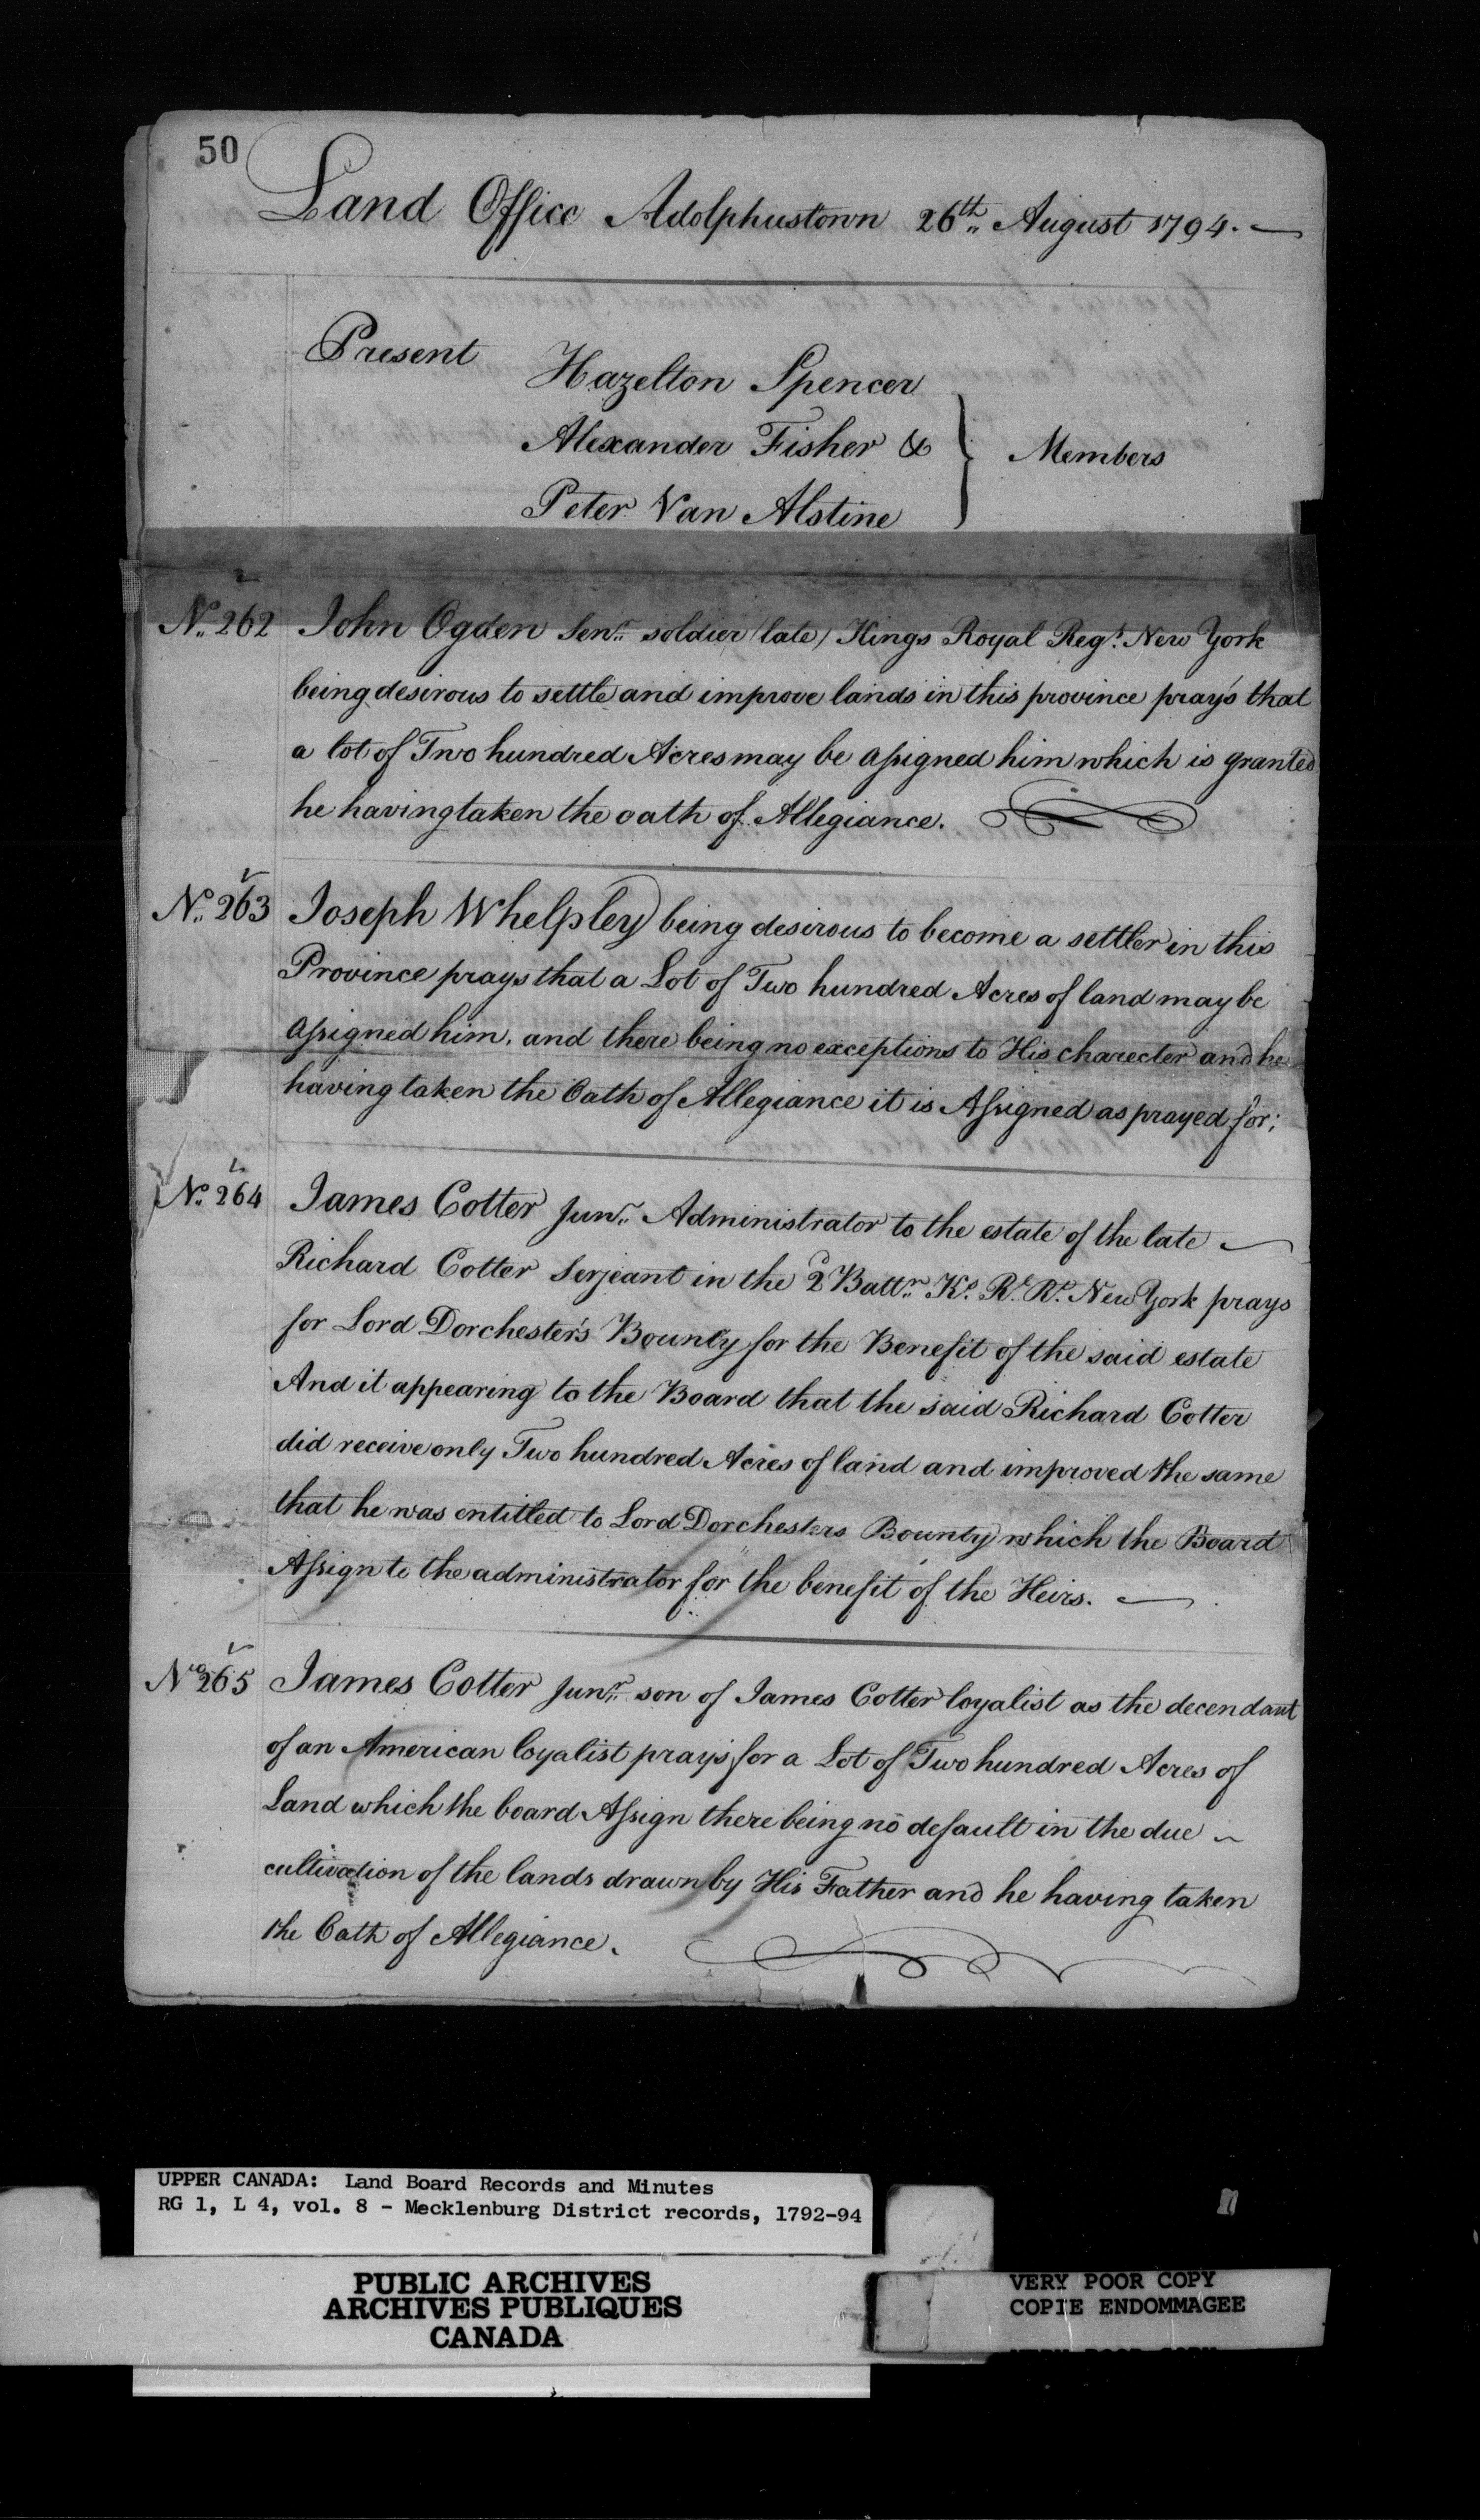 50
Land Office Adolphustown 26th August 1794.
Present
Hazelton Spencer
Alexander Fisher &
Members
Peter Van Alstine
No. 262 John Ogden Senr. soldier (late) Kings Royal Regt. New York
being desirous to settle and improve lands in this province pray's that
a lot of Two hundred Acres may be assigned him which is granted
he having taken the oath of Allegiance.
No. 263 Joseph Whelpley being desirous to become a settler in this
Province prays that a Lot of Two hundred Acres of land may be
assigned him, and there being no exceptions to His charecter and he
having taken the Oath of Allegiance it is Assigned as prayed for;
No. 264 James Cotter Junr. Administrator to the estate of the late
Richard Cotter Serjeant in the 2d Battn. Ks. Rl. Rt. New York prays
for Lord Dorchester's Bounty for the Benefit of the said estate
And it appearing to the Board that the said Richard Cotter
did receive only Two hundred Acres of land and improved the same
that he was entitled to Lord Dorchesters Bounty which the Board
Assign to the administrator for the benefit of the Heirs.
No 265 James Cotter Junr. son of James Cotter loyalist as the decendant
of an American loyalist pray's for a Lot of Two hundred Acres of
Land which the board Assign there being no default in the due
cultivation of the lands drawn by His Father and he having taken
the Oath of Allegiance.
UPPER CANADA: Land Board Records and Minutes
RG 1, L 4, vol. 8 - Mecklenburg District records, 1792-94
PUBLIC ARCHIVES
ARCHIVES PUBLIQUES
CANADA
VERY POOR COPY
COPIE ENDOMMAGEE